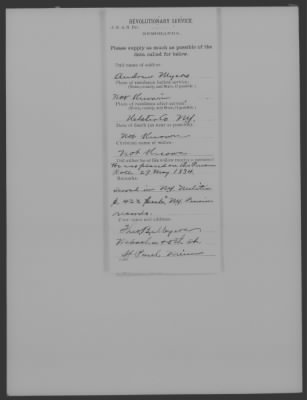 REVOLUTIONARY SERVICE.
MEMORANDA.
Please supply as much as possible of the
data called for below.
Full name of soldier:
Andrew Myers
Place of residence before service:
(Town, county, and State, if possible.)
Not Known
Place of residence after service:
(Town, county, and State, if possible.)
NY.
Date of death (as near as possible):
Not Known
Christian name of widow:
Not Known
Did either he or his widow receive a pension?
He was placed on the Pension
Roll 29 May 1834.
Remarks:
Served in NY Militia
p 422 NY Pension
records.
Your name and address:
Myers
St Paul Minn